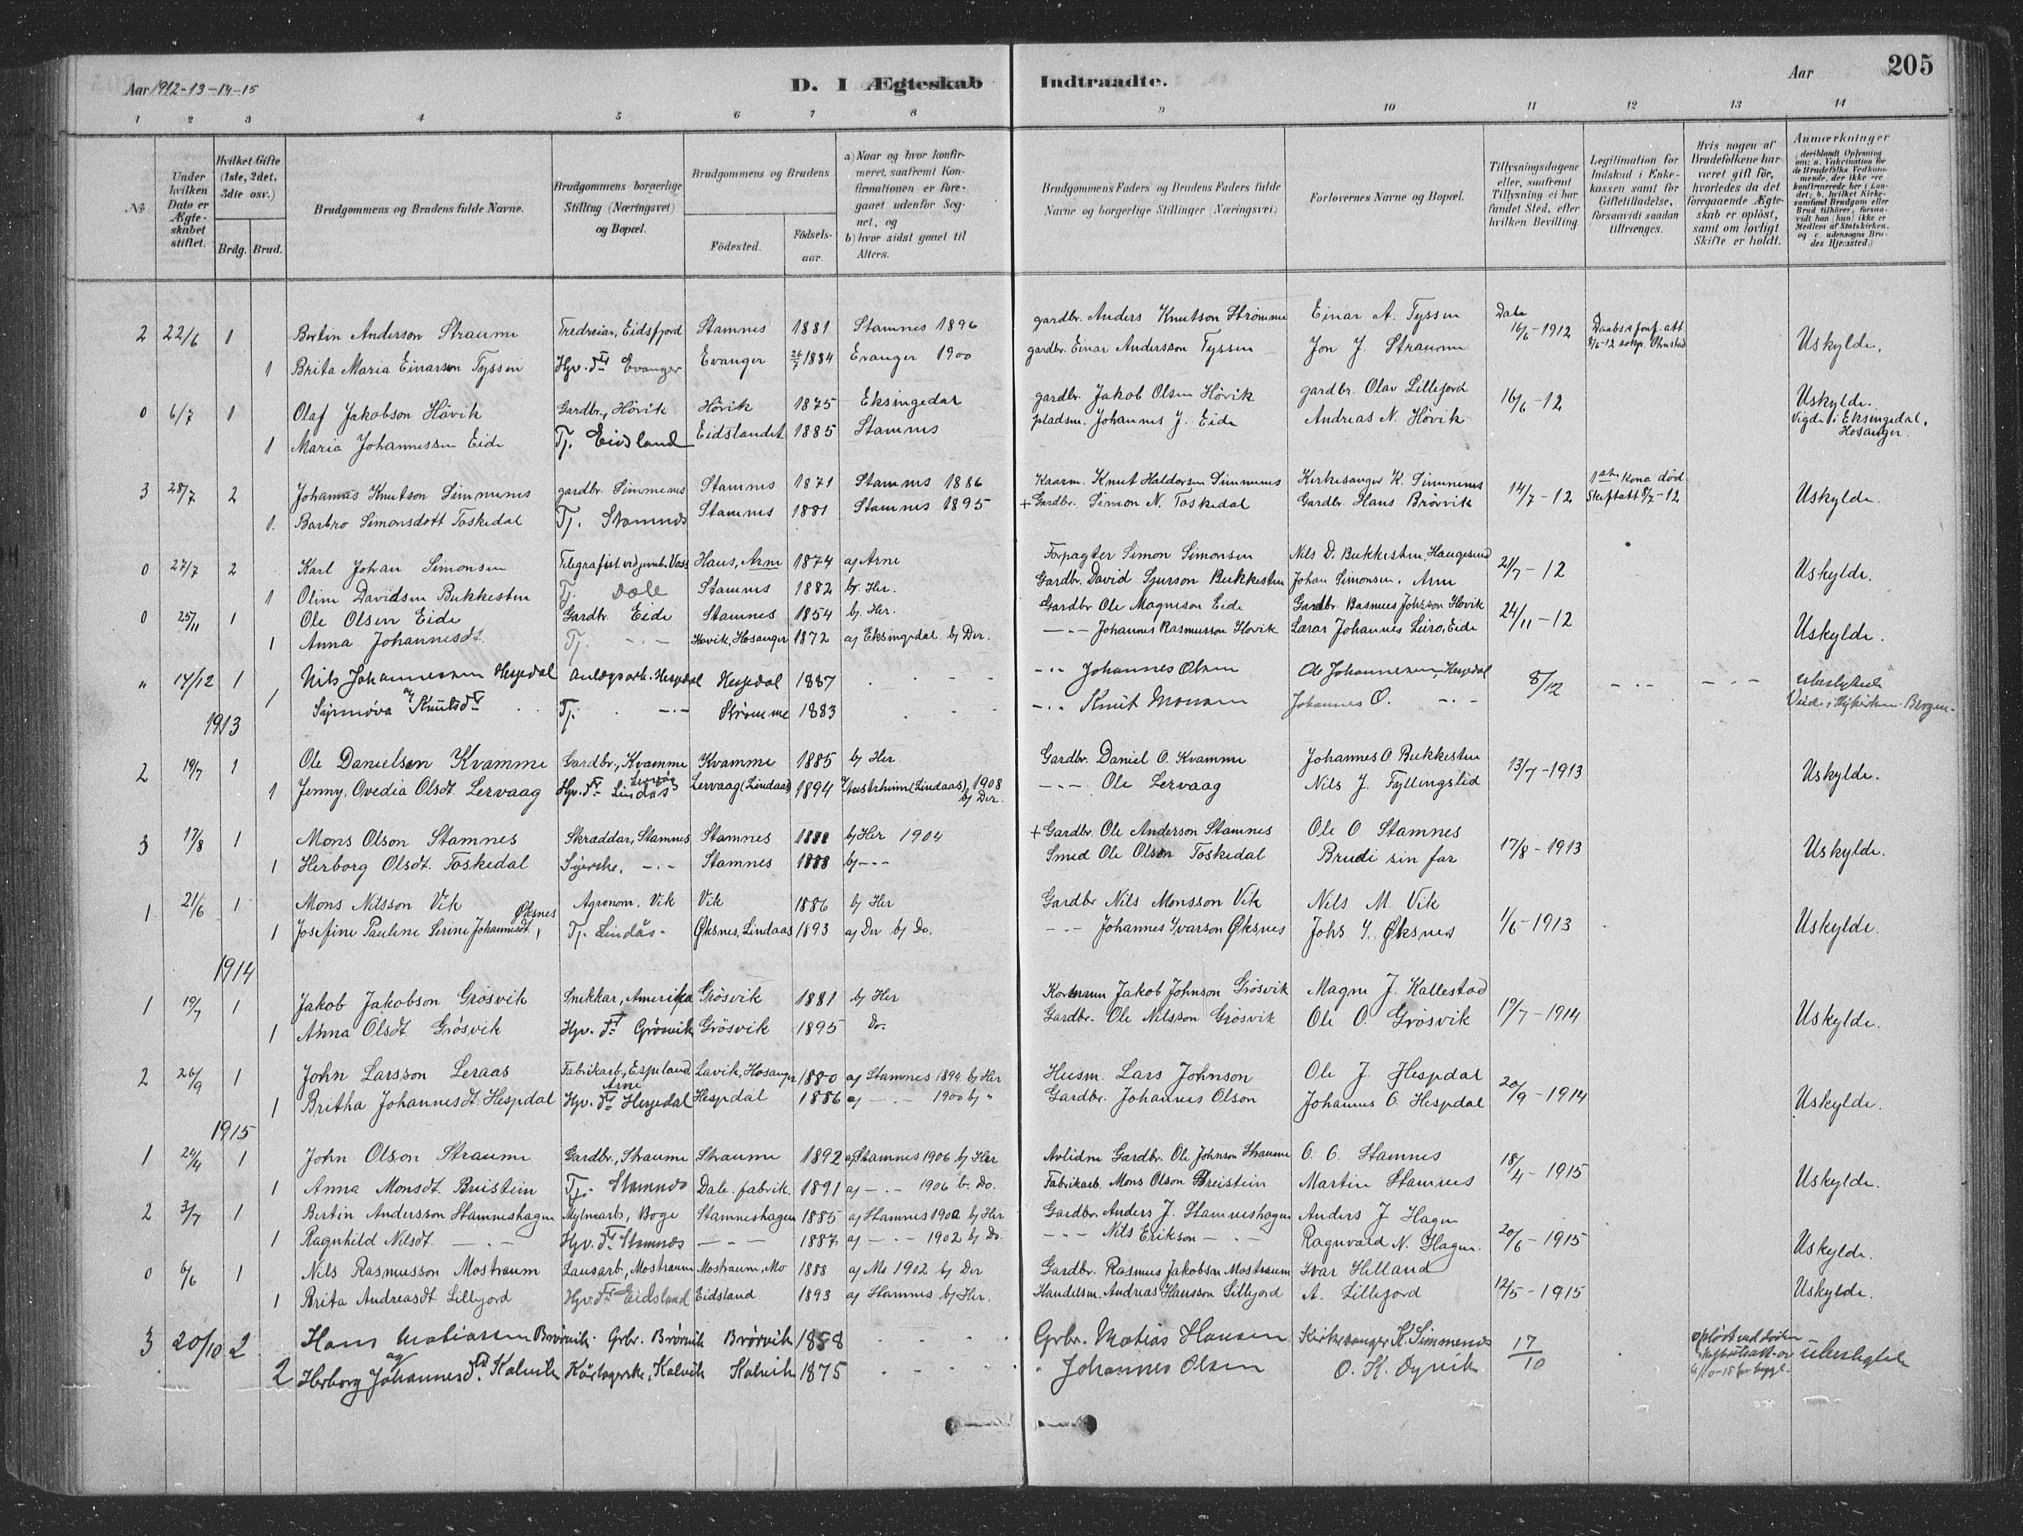 Aar 1912-13-14-15
D. I Ægteskab Indtraadte.
Aar 205
1 2 3 4 5 6 7 8 9 10 11 12 13 14
№
Under hvilken Dato er Ægteskabet stiftet.
Hvilket Gifte (1ste, 2det, 3die osv.)
Brdg. Brud.
Brudgommens og Brudens fulde Navne.
Brudgommens borgerlige Stilling (Næringsvei) og Bopæl.
Brudgommens og Brudens
Fødested. Fødselsaar.
a) Naar og hvor konfirmeret, saafremt Konfirmationen er foregaaet udenfor Sognet, og
b) hvor sidst gaaet til Alters.
Brudgommens Faders og Brudens Faders fulde Navne og borgerlige Stillinger (Næringsvei)
Forlovernes Navne og Bopæl.
Tillysningsdagene eller, saafremt Tillysning ei har fundet Sted, efter hvilken Bevilling.
Legitimation for Indskud i Enkekassen samt for Giftetilladelse, forsaavidt saadan tiltrænges.
Hvis nogen af Brudefolkene har været gift før, hvorledes da det foregaaende Ægteskab er opløst, samt om lovligt Skifte er holdt.
Anmærkninger (deriblandt Oplysning om: a. Vakcination for de Brudefolks Vedkommende, der ikke ere konfirmerede her i Landet; b. hvilket Kirkesamfund Brudgom eller Brud tilhører, forsaavidt han (hun) ikke er Medlem af Statskirken, og c. udensogns Brudes Hjemsted.)
2 22/6 1 Bertin Anderson Straume Tredreiar, Eidsfjord Stamnes 1881 Stamnes 1896 gardbr. Anders Knutson Strømme Einar A. Tyssen Dato 16/6-1912 Daabs & konf. att 8/6-12 sokp. Olmstad Uskylde.
1 Brita Maria Einarson Tyssen Hjv. dtr Evanger Evanger 26/7 1884 Evanger 1900 gardbr. Einar Anderson Tyssen Jon J. Straume
0 6/7 1 Olaf Jakobson Hövik Gardbr, Hövik Hövik 1875 Eksingedal gardbr. Jakob Olsen Hövik gardbr. Olav Lillefjord 16/6-12 Uskylde.
1 Maria Johannessen Eide Tj. Eidsland Eidslandet 1885 Stamnes pladsm. Johannes J. Eide Andreas N. Hövik Vigde i Eksingedal, Hosanger.
3 28/7 2 Johannes Knutson Simmenes gardbr. Simmenes Stamnes 1871 Stamnes 1886 Kaarm. Knut Haldorsen Simmenes Kirkesanger K. Simmenes 14/7-12 1ste kona död Skiftatt 8/7-12 Uskylde.
1. Barbro Simonsdott Toskedal Tj. Stamnes Stamnes 1881 Stamnes 1895 + Gardbr. Simon N. Toskedal Gardbr Hans Brörvik
0 27/7 2 Karl Johan Simonsen Telegrafist ved jernb. Voss Haus, Arne 1874 a) Arne Forpagter Simon Simonsen Nils D. Bukkesten, Haugesund 21/7-12 Uskylde.
1 Oline Davidsen Bukkesten Tj. Dale Stamnes 1882 b) Her. Gardbr. David Sjurson Bukkesten Johan Simonsen, Arne
0 25/11 1 Ole Olsen Eide Gardbr Eide Stamnes 1854 b) Her. Gardbr Ole Magneson Eide Gardbr. Rasmus Johnson Hovik 24/11-12 Uskylde.
1 Anna Johannesdt. Tj. -"- Hovik, Hosanger 1872 a) Eksingedal b) Der. -"- Johannes Rasmusson Hovik Lærar Johannes Leiro, Eide
" 14/12 1 Nils Johannessen Hesjedal Anlægsarb. Hesjedal Hesjedal 1887 -"- Johannes Olsen Ole Johannessen, Hesjedal 8/12 - " - - " -
1 Synnøva Knutsdtr Tj. -"- Strømme 1883 -"- Knut Monsen Johannes O. -"- Viede i Nykirken Bergen.
1913
2 19/7 1 Ole Danielsen Kvamme Gardbr, Kvamme Kvamme 1885 b) Her Gardbr. Daniel O. Kvamme Johannes O Bukkesten 13/7-1913 Uskylde.
1 Jenny, Ovedia Olsdt Lervaag Hjv. dtr Lervåg Lindås Lervaag (Lindaas) 1894 a) Austrheim (Lindaas) 1908 b) Der. -"- Ole Lervaag Nils J. Fyllingslid
3 17/8 1 Mons Olson Stamnes Skræddar, Stamnes Stamnes 1888 b) Her 1904 + Gardbr. Ole Anderson Stamnes Ole O. Stamnes 17/8-1913 Uskylde.
1 Herborg Olsdt. Toskedal Syerske, -"- Stamnes 1888 b) -"- Smed Ole Olson Toskedal Brudi sin far
1 21/6 1 Mons Nilsson Vik Agronom, Vik Vik 1886 b) Her Gardbr Nils Monsson Vik Nils M. Vik 1/6-1913 Uskylde.
1 Josefine Pauline Serine Johannesdt, Øksnes Tj. Lindås. Øksnes, Lindaas 1893 a) Der b) Do. -"- Johannes Ivarson Øksnes Johs I. Øksnes
1914
1 19/7 1 Jakob Jakobson Grösvik Snikkar, Amerika Grösvik 1881 b) Her Jakob Johnson Grösvik Magne J. Kallestad 19/7-1914 Uskylde.
1 Anna Olsdt Grösvik Hjv. dtr Grösvik Grösvik 1895 Do. Gardbr. Ole Nilsson Grösvik Ole O. Grösvik
2 26/9 1 John Larsson Leraas Fabrikarb, Espeland, Arne Lavik, Hosanger 1880 a) Stamnes 1894 b) Her Husm. Lars Johnson Ole J. Hespdal 20/9-1914 Uskylde.
1 Britha Johannesdt. Hespdal Hjv. dtr Hesjedal Hespdal 1886 a) -"- 1900 b) " Gardbr. Johannes Olson Johannes O. Hespdal
1915
1 24/4 1 John Olson Straume Gardbr, Straume Straume 1892 a) Stamnes 1906 b) Her Avlidne Gardbr. Ole Johnson Straume O. O. Stamnes 18/4-1915 Uskylde.
1 Anna Monsdt. Breistein Tj. Stamnes Dale fabrik. 1891 a) -"- 1906 b. Do. Fabrikarb. Mons Olson Breistein Martin Stamnes
2 3/7 1 Bertin Andersson Stamneshagen Mylnarb, Boge Stamneshagen 1885 a) Stamnes 1900 b) Her Gardbr. Anders J. Stamneshagen Anders J Hagen 20/6-1915 Uskylde.
1 Ragnhild Nilsdt. -"- Hjv. dtr Stamnes -"- 1887 a) -"- 1902 b) Do. -"- Nils Erikson -"- Ragnvald N. Hagen.
0 6/6 1 Nils Rasmusson Mostraum Lausarb, Mostraum Mostraum, Mo 1888 a) Mo 1902 b) Der Gardbr. Rasmus Jakobson Mostraum Ivar Helland 12/5-1915 Uskylde.
1 Brita Andreasdt Lillejord Hjv. dtr Eidsland Eidsland 1893 a) Stamnes b) Her. Handelsm. Andreas Hansson Lillejord A. Lillefjord
3 20/10 2 Hans Matiassen Brørvik. Grbr. Brørvik Brørvik 1858 Grbr. Matias Hansen Kirkesanger K. Simmenes 17/10
2 Herborg Johannesdtr Kalvik Kalvik Kalvik 1875 " Johannes Olsen O. K. Dyvik